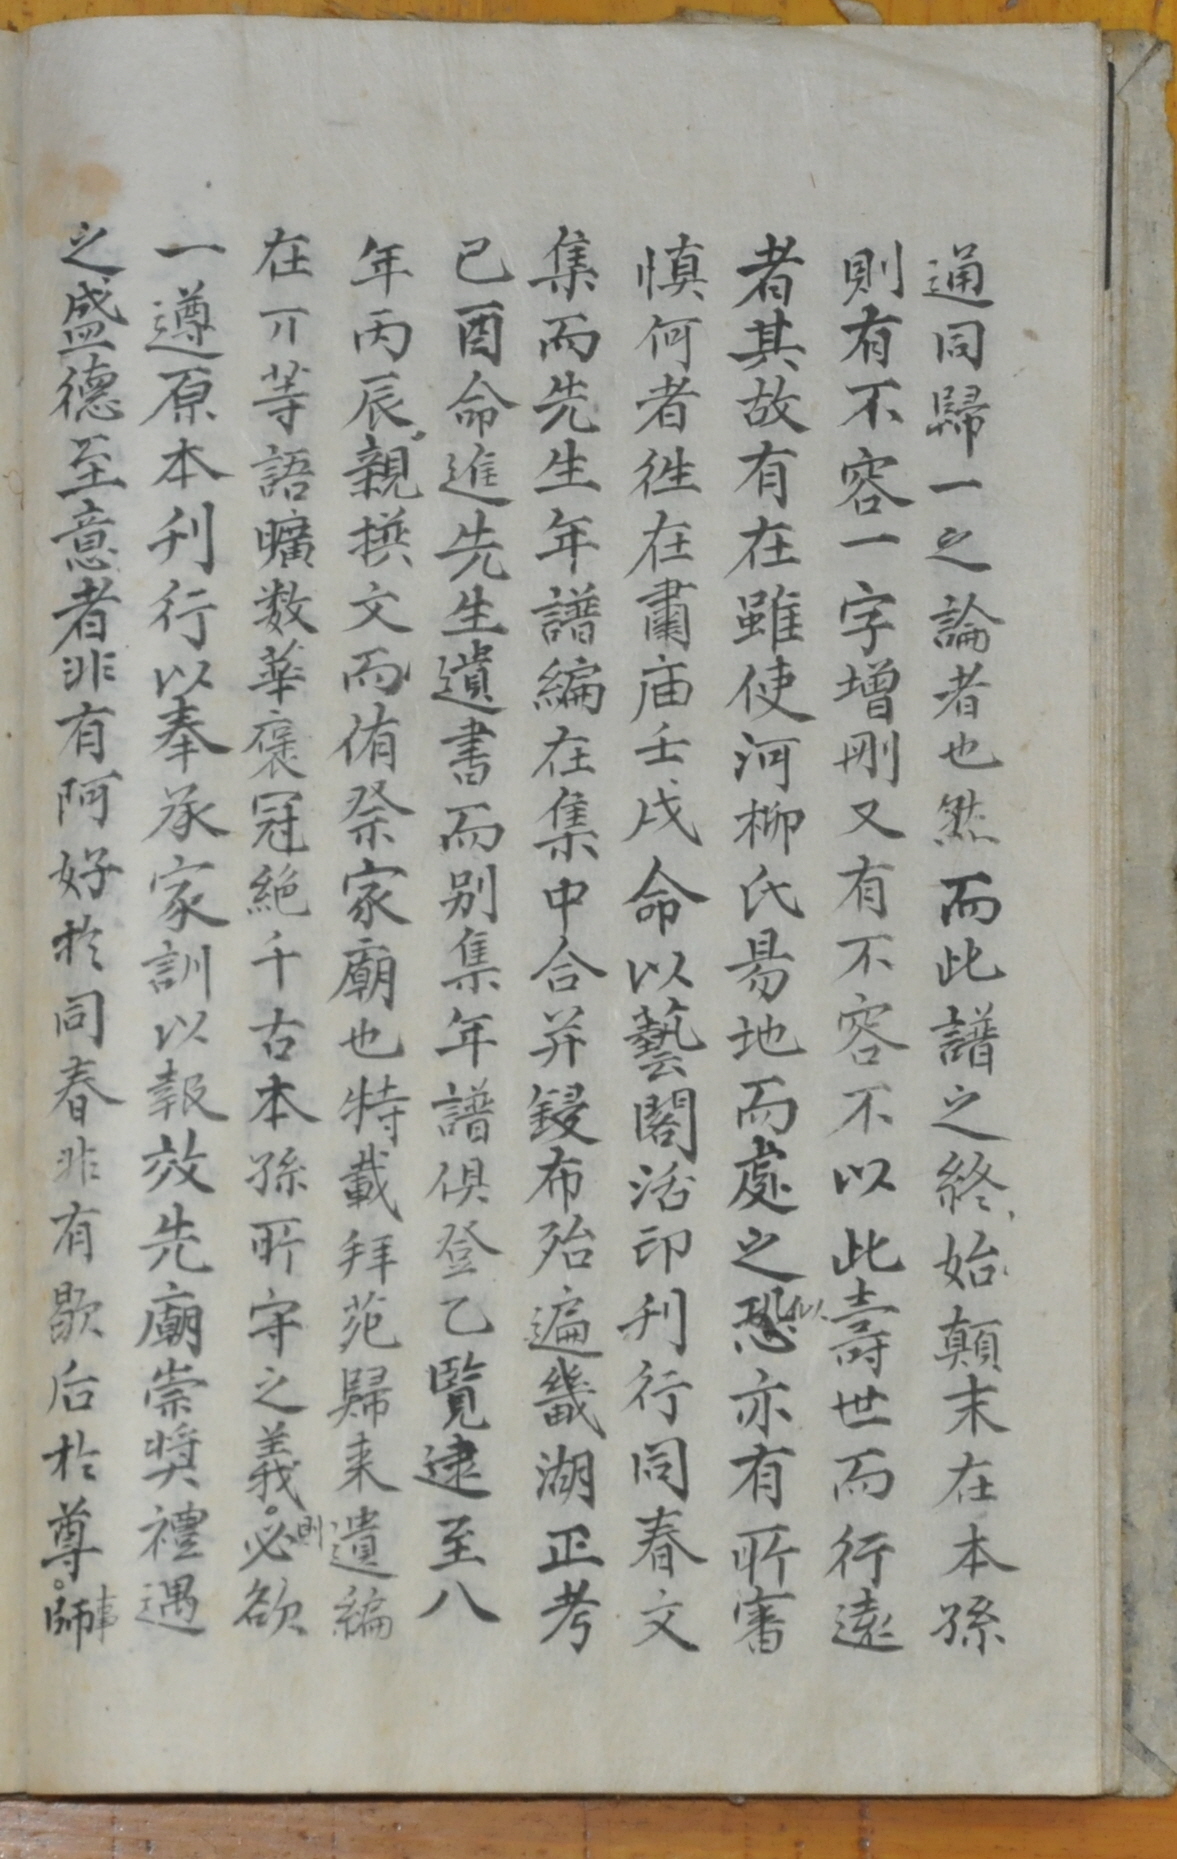 通同歸一之論者也然而此譜之終始顛末在本孫
則有不容一字增刪又有不容不以此壽世而行遠
者其故有在雖使河柳氏易地而處之恐似亦有所審
慎何者徃在肅庙壬戌命以藝閣活印刋行同春文
集而先生年譜編在集中合并鋟布殆遍畿湖正考
已酉命進先生遺書而别集年譜俱登乙覽逮至八
年丙辰親撰文而侑祭家廟也特載拜苑歸来遺編
在丌等語曠数華褒冠絶千古本孫所守之義則必欲
一遵原本刋行以奉承家訓以報效先廟崇奬禮遇
之盛德至意者非有阿好於同春非有歇后於尊師事